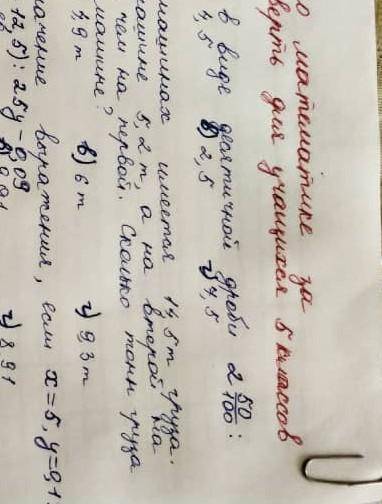 о математике за
верть для учащихся 5 классов
в виде десятичной дроби 2 50/100 :
4,5 в) 2,5 г) 7,5
машинах имеется 14,5 т груза.
ашине 5,2 т, а на второй на
чем на первой. Сколько тонн груза
машине?
в) 6 т г) 9,3 т
ачение выражения, если x=5, y=0,1:
12,5):25y-0,09
г) 8,91